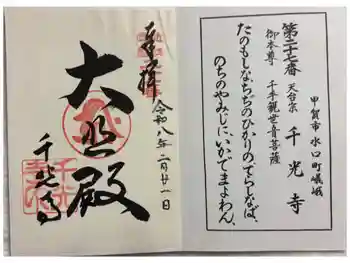 奉拝
大悲殿
千光寺
令和八年二月廿一日
第二十七番 天台宗 千光寺
御本尊 千手観世音菩薩
甲賀市水口町嶬峨
たのもしな、ちぢのひかりの、てらしなば、
のちのやみじに、いかでまよわん、